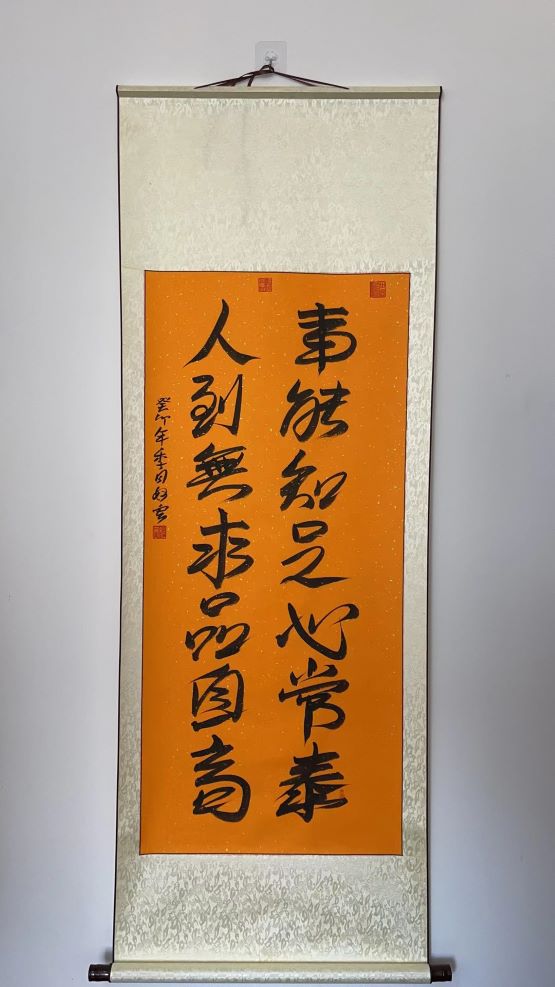 事能知足心常泰
人到無求品自高
癸卯年季月